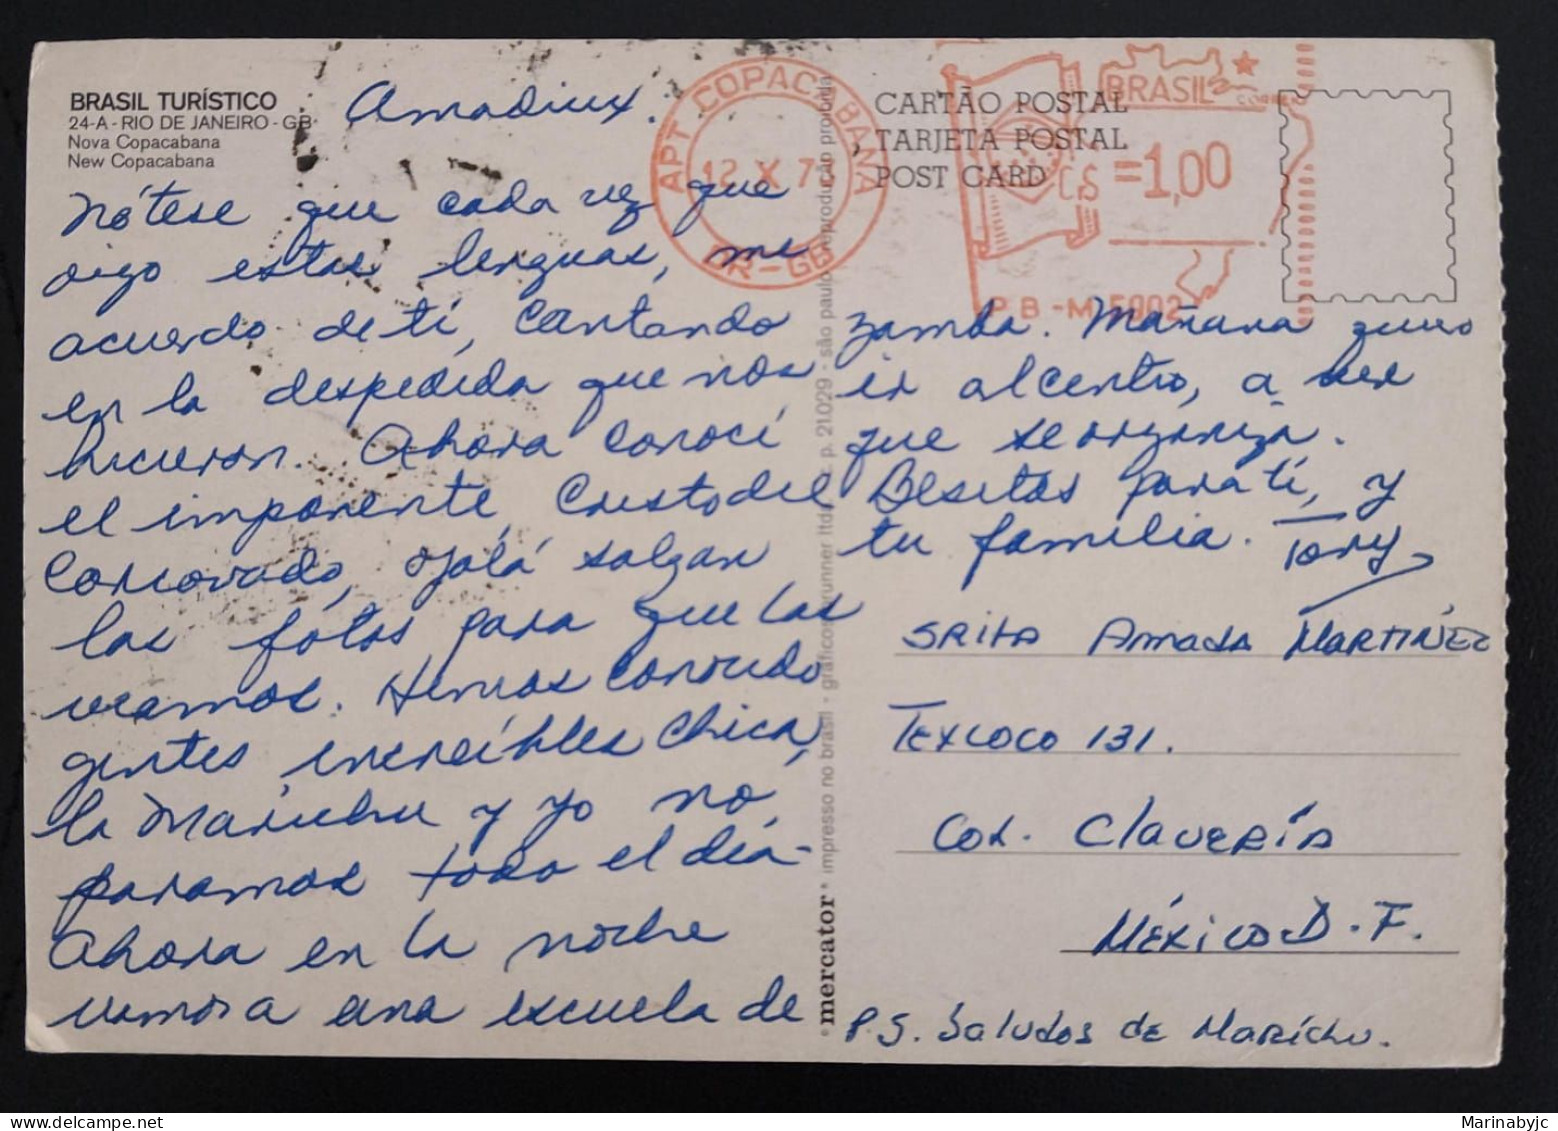 BRASIL TURÍSTICO
24-A - RIO DE JANEIRO - GB
Nova Copacabana
New Copacabana
Amadiux.
Nótese que cada vez que
oigo estas lenguas, me
acuerdo de tí, cantando
en la despedida que nos
hicieron. Ahora conocí
el imponente, Cristo del
Corcovado, ojalá salgan
las fótos para que las
veamos. Hemos conocido
gentes increíbles chica,
la Marichu y yo no
paramos todo el día-
Ahora en la noche
vamos a una escuela de
zamba. Mañana quiero
ir al centro, a ver
que se organiza.
Besitos para tí, y
tu familia. Tony
APT COPACABANA
12 X 7
DR-GB
CARTÃO POSTAL
TARJETA POSTAL
POST CARD
BRASIL
CORREIO
C.S =1,00
P.B-M 5002
SRITA AMADA MARTINEZ
TEXCOCO 131.
COL. CLAVERÍA
MÉXICO D.F.
P.S. Saludos de Marichu.
°mercator° impresso no brasil · gráficos brunner ltda. c. p. 21.029 · são paulo · reprodução proibida
Marinabyjc